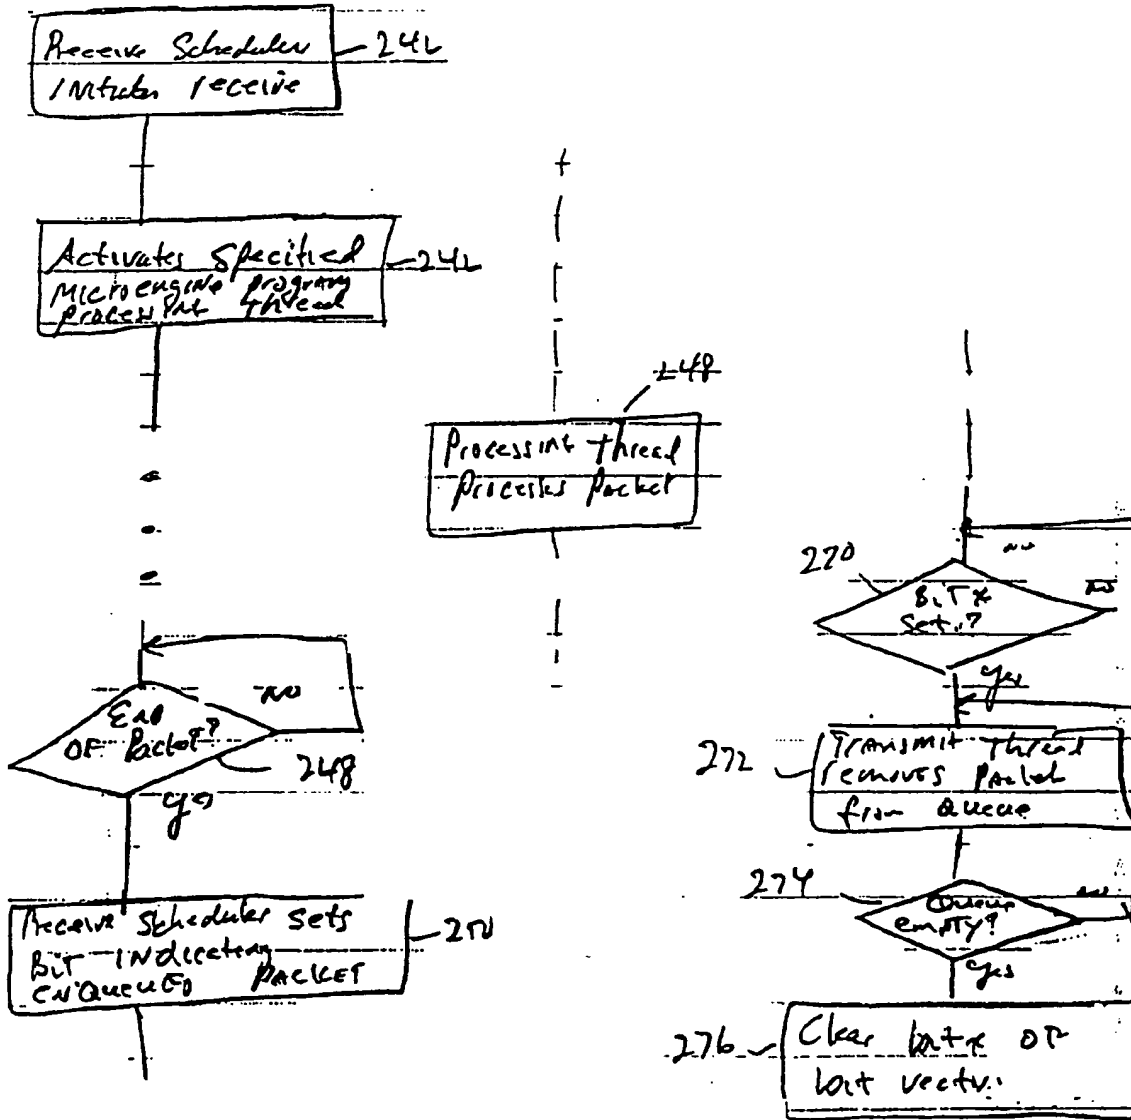 Receive Scheduler
Initiates receive
242
Activates Specified
Microengine program
processing thread
248
Processing thread
Processes Packet
End
OF Packet?
NO
248
yes
Receive Scheduler Sets
BiT INdicating
ENQUEUED PACKET
250
no
270
BiT x
Set?
no
yes
272
Transmit thread
removes Packet
from Queue
274
Queue
empty?
no
yes
276
Clear bit x OF
bit vector